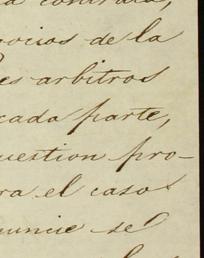 a contraria,
gocios de la
es arbitros
cada parte,
uestion pro-
ra el caso
nuncie se